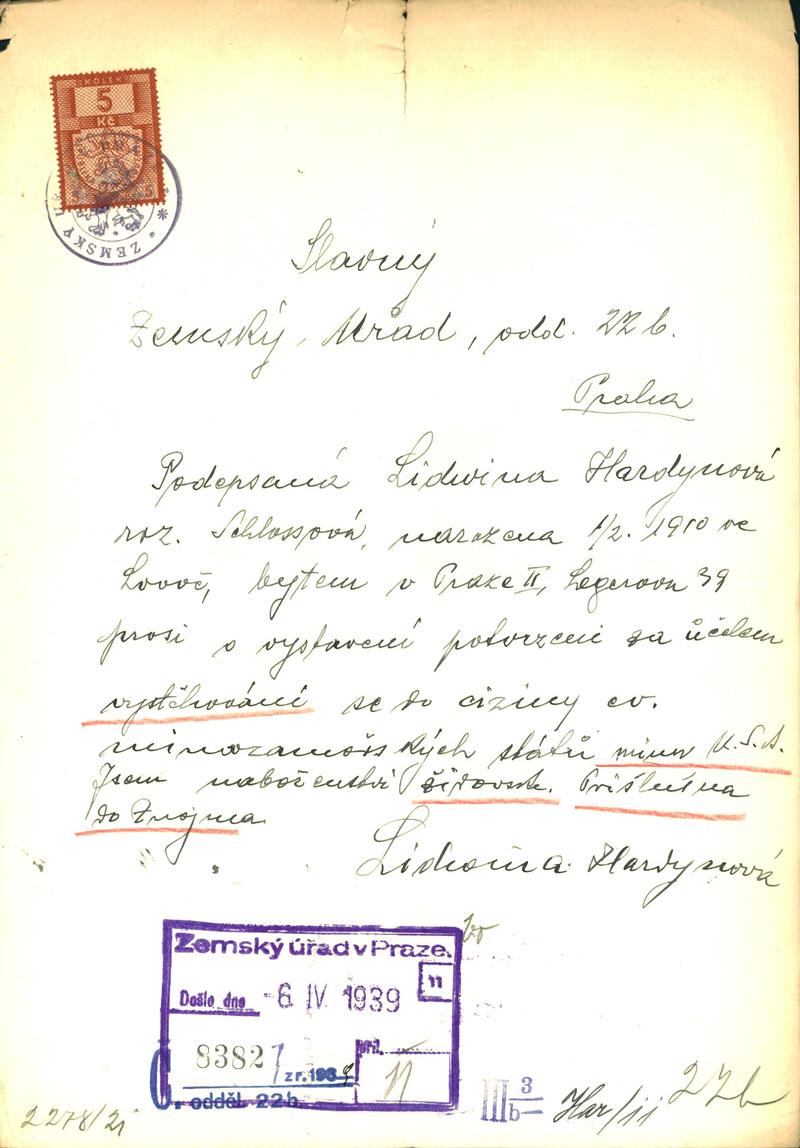 KOLEK
5
Kč
ZEMSKÝ
Slavný
Zemský Úřad, odd. 22 b.
Praha
Podepsaná Lidwina Hardynová
roz. Schlossová, narozena 1/2. 1910 ve
bytem v Praze II, Legerova 39
prosí o vystavení potvrzení za účelem
vystěhování se do ciziny ev.
mimozamořských států mimo U.S.A.
Jsem náboženství židovsk. Příslušná
do Znojma
Lidwina Hardynová
Zemský úřad v Praze.
11
Došlo dne - 6. IV. 1939
83827 z r. 1939
příl.
Č. odděl. 22b.
III 3/b
Har/ij 22b
2278/2i